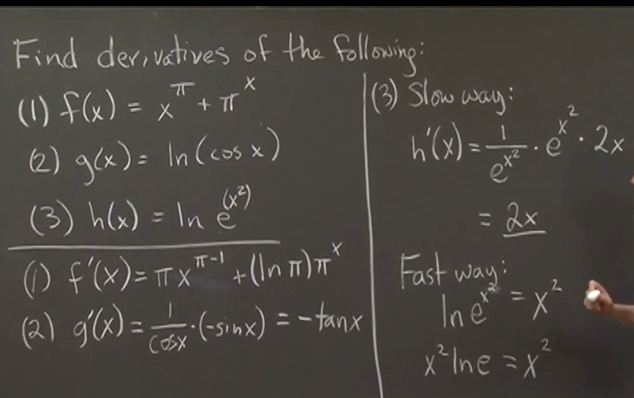 Find derivatives of the following:
(1) f(x) = x^π + π^x
(2) g(x) = ln(cos x)
(3) h(x) = ln e^(x²)
(1) f'(x) = πx^(π-1) + (ln π)π^x
(2) g'(x) = 1/cosx · (-sinx) = -tanx
(3) Slow way:
h'(x) = 1/e^(x²) · e^(x²) · 2x
= 2x
Fast way:
ln e^(x²) = x²
x² ln e = x²